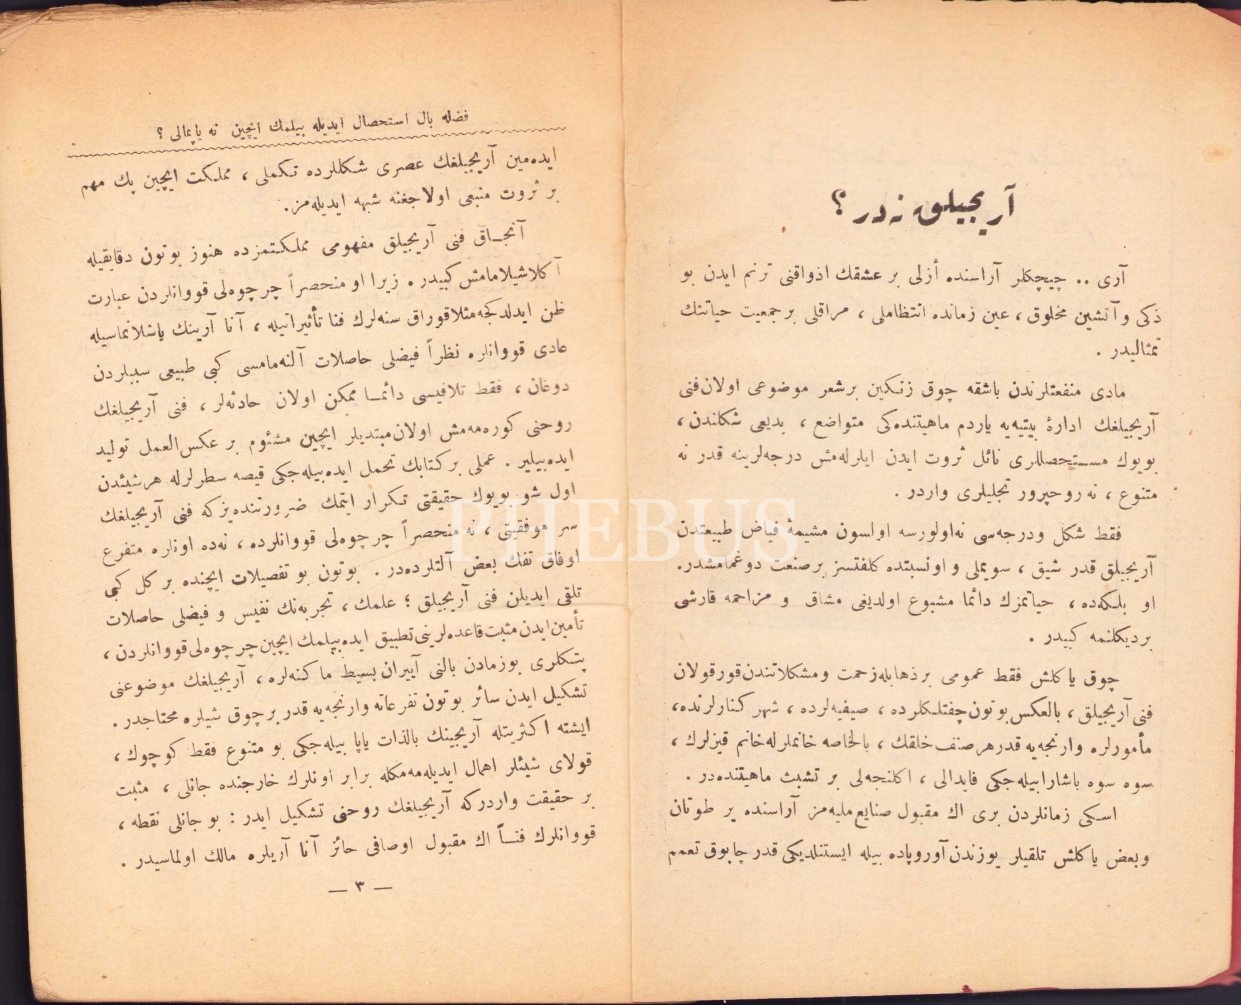 آریجیلق نه در ؟
آری .. چیچكلر آراسنده أزلی بر عشقك اذواقنی ترنم ایدن بو
ذكی و آتشین مخلوق ، عین زمانده انتظاملی ، مراقلی بر جمعیت حیاتنك
تمثالیدر .
مادی منفعتلرندن باشقه چوق زنكین بر شعر موضوعی اولان فنی
آریجیلغك ادارهٔ بیتیه یه یاردم ماهیتنده كی متواضع ، بدیعی شكلندن ،
بویوك مستحصللری نائل ثروت ایدن ایلرله مش درجه لرینه قدر نه
متنوع ، نه روحپرور تجلیلری واردر .
فقط شكل ودرجه سی نه اولورسه اولسون مشیمهٔ فیاض طبیعتدن
آریجیلق قدر شیق ، سویملی و اونسبتده كلفتسز بر صنعت دوغمامشدر.
او بلكه ده ، حیاتمزك دائما مشبوع اولدیغی مشاق و مزاحمه قارشی
بر دیكلنمه كبیدر .
چوق یاكلش فقط عمومی بر ذهابله زحمت ومشكلاتندن قورقولان
فنی آریجیلق ، بالعكس بوتون چفتلكلرده ، صیفیه لرده ، شهر كنارلرنده ،
مأمورلره وارنجه یه قدر هر صنف خلقك ، بالخاصه خانملرله خانم قیزلرك ،
سوه سوه باشارابیله جكی فایدالی ، اكلنجه لی بر تشبث ماهیتنده در .
اسكی زمانلردن بری اك مقبول صنایع ملیه مز آراسنده یر طوتان
وبعض یاكلش تلقیلر یوزندن آوروپاده بیله ایستنلدیكی قدر چابوق تعمم
فضله بال استحصال ایدیله بیلمك ایچین نه یاپمالی ؟
ایده مین آریجیلغك عصری شكللرده تكملی ، مملكت ایچین پك مهم
بر ثروت منبعی اولاجغنه شبهه ایدیله مز.
آنجاق فنی آریجیلق مفهومی مملكتمزده هنوز بوتون دقایقیله
آكلاشیلامامش كبیدر. زیرا او منحصراً چرچوه لی قووانلردن عبارت
ظن ایدلدكجه مثلا قوراق سنه لرك فنا تأثیراتیله ، آنا آرینك یاشلانماسیله
عادی قووانلره نظراً فیضلی حاصلات آلنه مامسی كبی طبیعی سببلردن
دوغان ، فقط تلافیسی دائما ممكن اولان حادثه لر ، فنی آریجیلغك
روحنی كوره مه مش اولان مبتدیلر ایچین مشئوم بر عكس العمل تولید
ایده بیلیر . عملی بر كتابك تحمل ایده بیله جكی قیصه سطرلرله هر شیئدن
اول شو بویوك حقیقتی تكرار ایتمك ضرورتنده یز كه فنی آریجیلغك
سر موفقیتی ، نه منحصراً چرچوه لی قووانلرده ، نه ده اونلره متفرع
اوفاق تفك بعض آلتلرده در . بوتون بو تفصیلات ایچنده بر كل كبی
تلقی ایدیلن فنی آریجیلق ؛ علمك ، تجربه نك نفیس و فیضلی حاصلات
تأمین ایدن مثبت قاعده لرینی تطبیق ایده بیلمك ایچین چرچوه لی قووانلردن ،
پتكلری بوزمادن بالنی آییران بسیط ماكنه لره ، آریجیلغك موضوعنی
تشكیل ایدن سائر بوتون تفرعاته وارنجه یه قدر بر چوق شیلره محتاجدر .
ایشته اكثریتله آریجینك بالذات یاپا بیله جكی بو متنوع فقط كوچوك ،
قولای شیئلر اهمال ایدیله مه مكله برابر اونلرك خارجنده جانلی ، مثبت
بر حقیقت واردركه آریجیلغك روحنی تشكیل ایدر : بو جانلی نقطه ،
قووانلرك فناً اك مقبول اوصافی حائز آنا آریلره مالك اولماسیدر .
— ٣ —